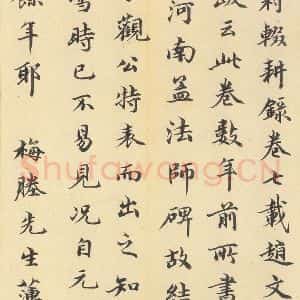 村輟耕錄卷七載趙文
跋云此卷數年前所書
河南蓋法師碑故結
觀公特表而出之知
時已不易見況自元
餘年耶 梅塍先生
Shufawang.CN